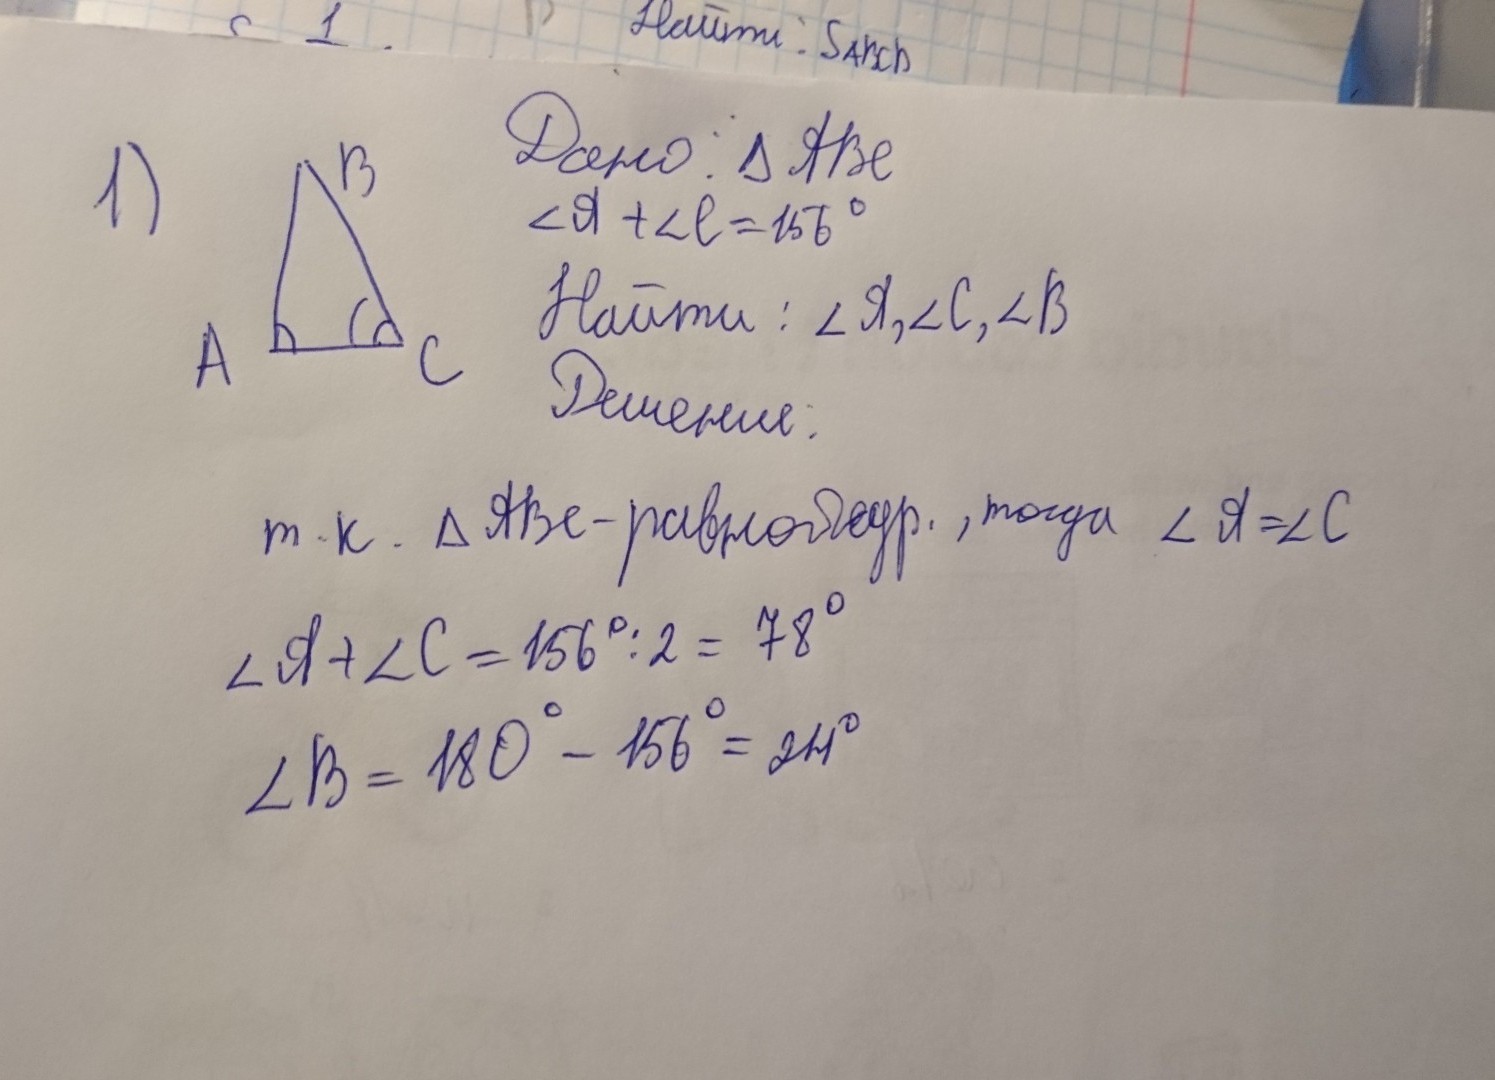 Найти: SABCD
1)
B
A
C
Дано: Δ ABC
∠A + ∠C = 156°
Найти: ∠A, ∠C, ∠B
Решение:
т.к. Δ ABC - равнобедр., тогда ∠A = ∠C
∠A + ∠C = 156° : 2 = 78°
∠B = 180° - 156° = 24°